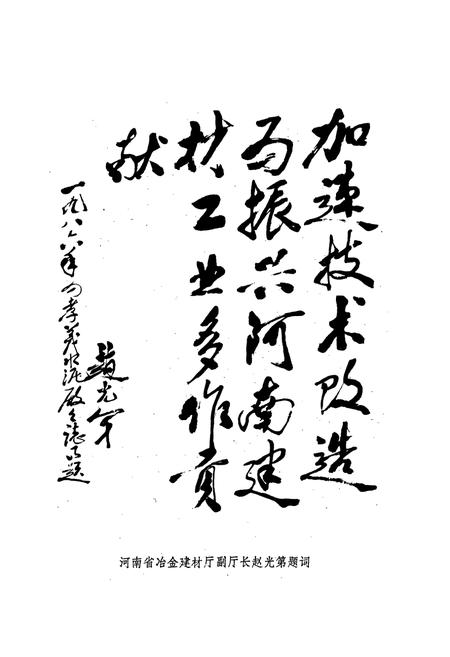 加速技术改造
为振兴河南建
材工业多作贡
献
一九八六年为孝义水泥厂厂志题
赵光第
河南省冶金建材厅副厅长赵光第题词